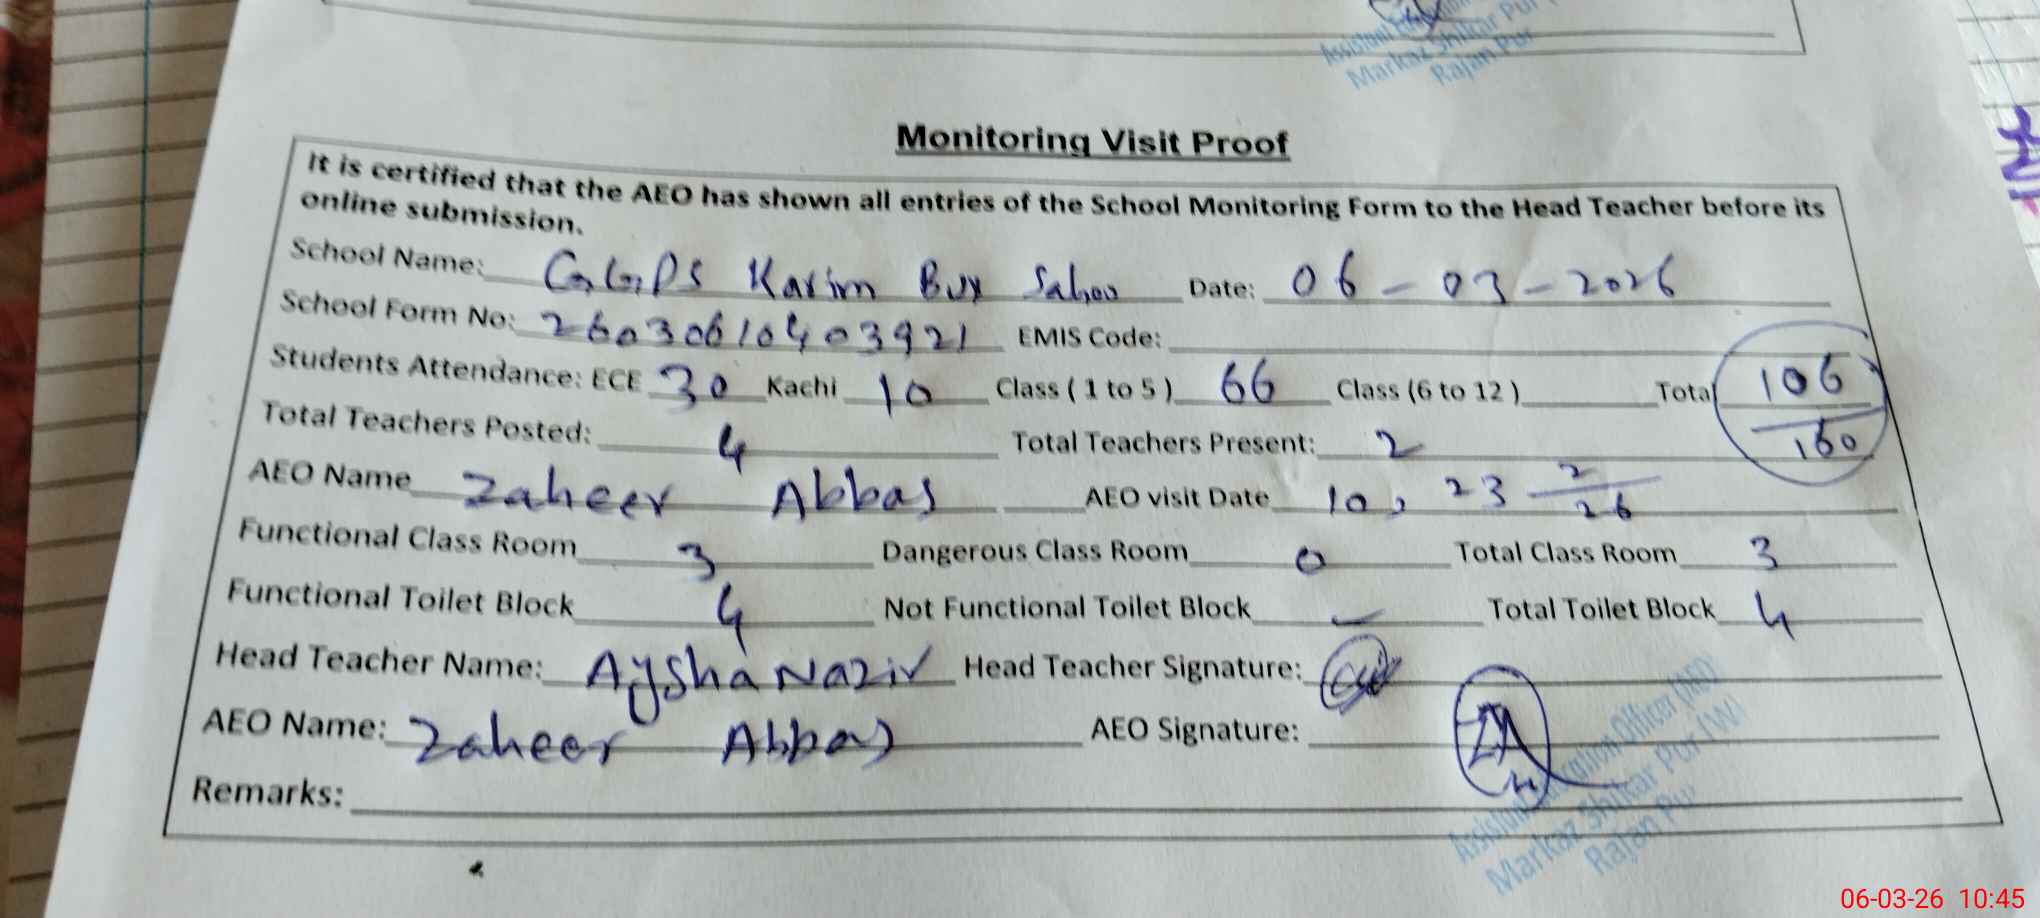 Markaz Shikar Pur
Rajan Pur
Monitoring Visit Proof
It is certified that the AEO has shown all entries of the School Monitoring Form to the Head Teacher before its
online submission.
School Name: GGPS Karim Bux Date: 06-03-2026
School Form No: 26030610403921 EMIS Code:
Students Attendance: ECE 30 Kachi 10 Class ( 1 to 5 ) 66 Class (6 to 12 ) Total 106/160
Total Teachers Posted: 4 Total Teachers Present: 2
AEO Name Zaheer Abbas AEO visit Date 10, 23 2/26
Functional Class Room 3 Dangerous Class Room 0 Total Class Room 3
Functional Toilet Block 4 Not Functional Toilet Block - Total Toilet Block 4
Head Teacher Name: Aysha Nazir Head Teacher Signature:
AEO Name: Zaheer Abbas AEO Signature: ZA
Remarks:
Assistant Education Officer (AEO)
Markaz Shikar Pur (W)
Rajan Pur
06-03-26 10:45